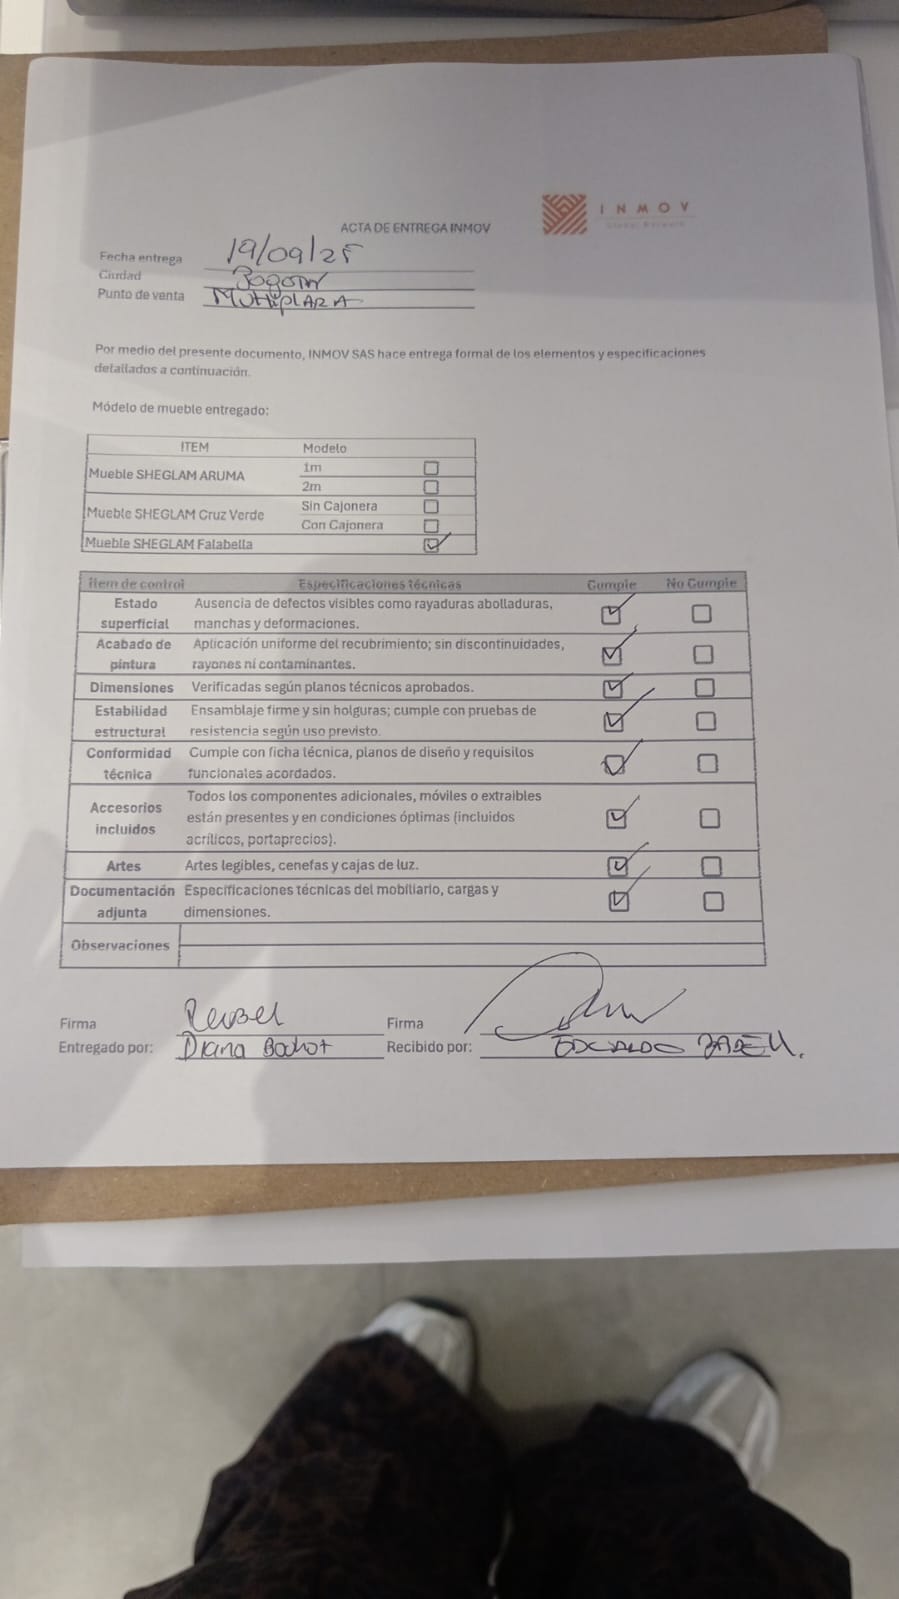 INMOV
ACTA DE ENTREGA INMOV
Fecha entrega 19/09/25
Ciudad Bogota
Punto de venta MultiplAzA
Por medio del presente documento, INMOV SAS hace entrega formal de los elementos y especificaciones
detallados a continuación.
Módelo de mueble entregado:
ITEM Modelo
Mueble SHEGLAM ARUMA 1m ☐
2m ☐
Mueble SHEGLAM Cruz Verde Sin Cajonera ☐
Con Cajonera ☐
Mueble SHEGLAM Falabella ☑
Ítem de control Especificaciones técnicas Cumple No Cumple
Estado superficial Ausencia de defectos visibles como rayaduras abolladuras, ☑ ☐
manchas y deformaciones.
Acabado de pintura Aplicación uniforme del recubrimiento; sin discontinuidades, ☑ ☐
rayones ni contaminantes.
Dimensiones Verificadas según planos técnicos aprobados. ☑ ☐
Estabilidad estructural Ensamblaje firme y sin holguras; cumple con pruebas de ☑ ☐
resistencia según uso previsto.
Conformidad técnica Cumple con ficha técnica, planos de diseño y requisitos ☑ ☐
funcionales acordados.
Accesorios incluidos Todos los componentes adicionales, móviles o extraibles ☑ ☐
están presentes y en condiciones óptimas (incluidos
acrílicos, portaprecios).
Artes Artes legibles, cenefas y cajas de luz. ☑ ☐
Documentación adjunta Especificaciones técnicas del mobiliario, cargas y ☑ ☐
dimensiones.
Observaciones
Firma Firma
Entregado por: Diana Recibido por: